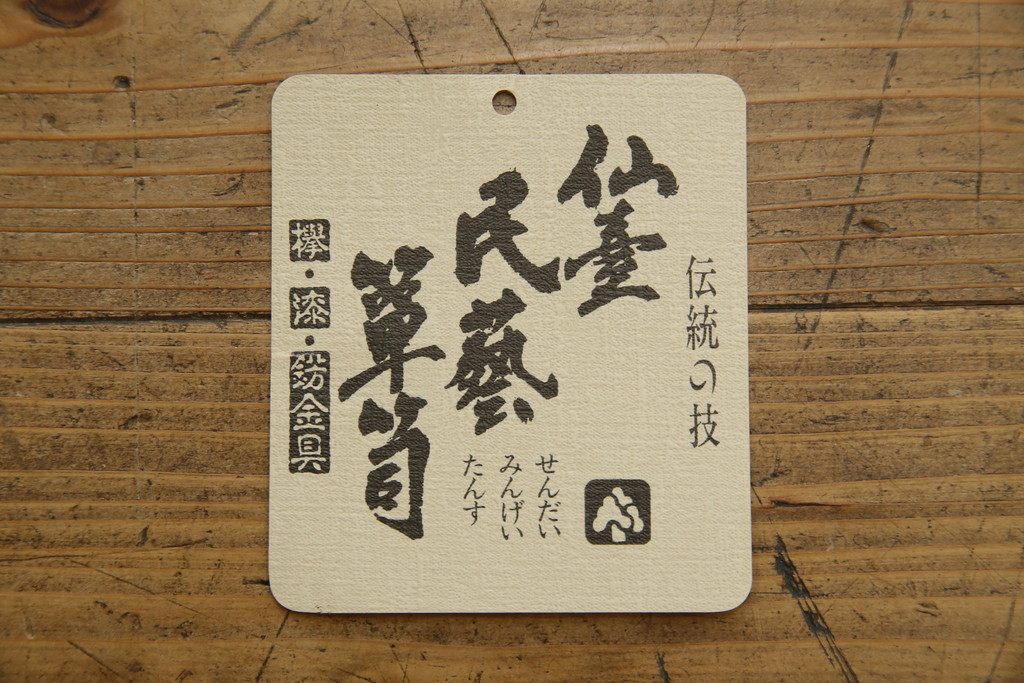 伝統の技
仙臺
民藝
簞笥
せんだい
みんげい
たんす
欅・漆・錺金具